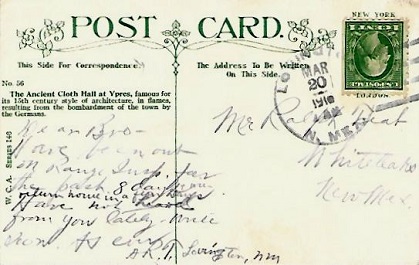 NEW YORK
POST CARD.
This Side for Correspondence.
The Address to be Written
On This Side.
No. 56
The Ancient Cloth Hall at Ypres, famous for
its 15th century style of architecture, in flames,
resulting from the bombardment of the town by
the Germans.
W. C. A. SERIES 146
MAR
20
1916
N. MEX.
Dear Bro-
Have been out
on Range Insp. for
the past 8 days
return home in a few days
Have not heard
from you lately. Write
soon. As ever
Lovington, NM
Mr
New Mex.